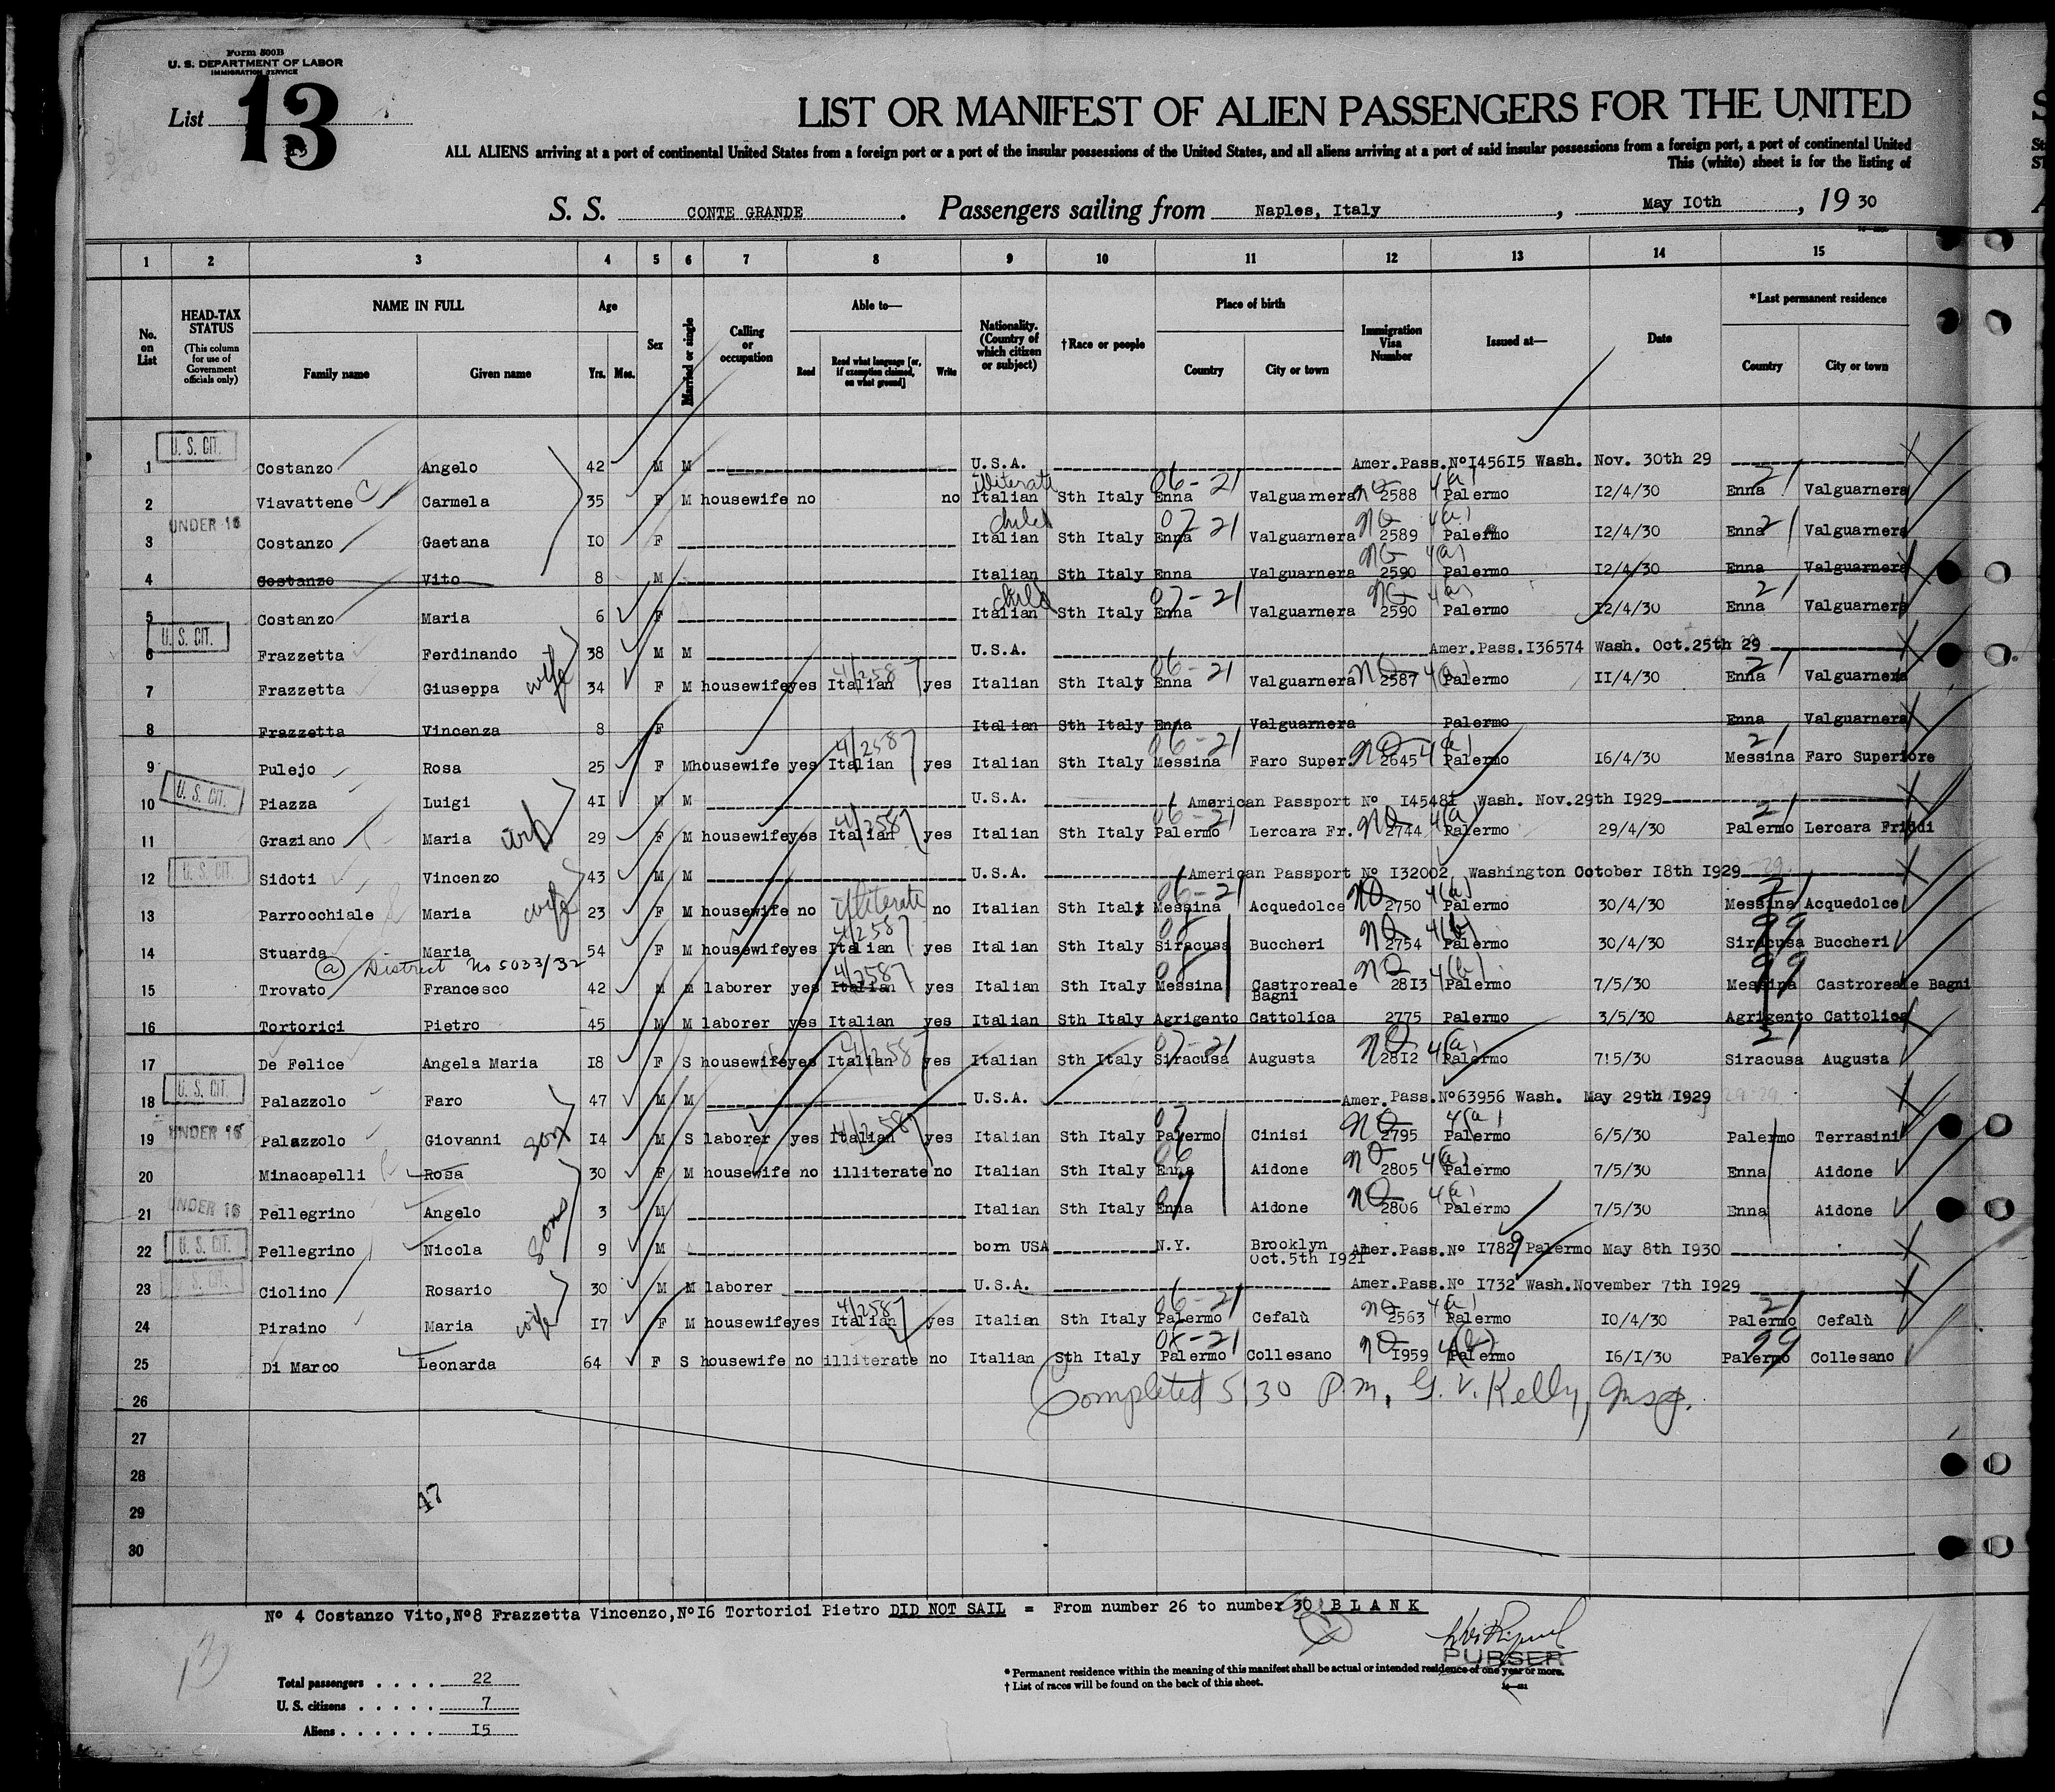 Form 500B
U. S. DEPARTMENT OF LABOR
IMMIGRATION SERVICE
List 13
LIST OR MANIFEST OF ALIEN PASSENGERS FOR THE UNITED
ALL ALIENS arriving at a port of continental United States from a foreign port or a port of the insular possessions of the United States, and all aliens arriving at a port of said insular possessions from a foreign port, a port of continental United
This (white) sheet is for the listing of
S. S. CONTE GRANDE. Passengers sailing from Naples, Italy, May 10th, 19 30
1 2 3 4 5 6 7 8 9 10 11 12 13 14 15
No. on List
HEAD-TAX STATUS (This column for use of Government officials only)
NAME IN FULL
Family name Given name
Age
Yrs. Mos.
Sex
Married or single
Calling or occupation
Able to—
Read Read what language [or, if exemption claimed, on what ground] Write
Nationality. (Country of which citizen or subject)
†Race or people
Place of birth
Country City or town
Immigration Visa Number
Issued at—
Date
*Last permanent residence
Country City or town
1 U. S. CIT. Costanzo Angelo 42 M M U.S.A. Amer.Pass.Nº145615 Wash. Nov. 30th 29
illiterate 06-21 4(a) 21
2 Viavattene C Carmela 35 F M housewife no no Italian Sth Italy Enna Valguarnera NQ 2588 Palermo 12/4/30 Enna Valguarnera
UNDER 16 child 07 21 NQ 4(a)
3 Costanzo Gaetana 10 F Italian Sth Italy Enna Valguarnera 2589 Palermo 12/4/30 Enna 21 Valguarnera
NQ 4(a)
4 Costanzo Vito 8 M Italian Sth Italy Enna Valguarnera 2590 Palermo 12/4/30 Enna Valguarnera
child 07-21 NQ 4(a) 21
5 Costanzo Maria 6 F Italian Sth Italy Enna Valguarnera 2590 Palermo 12/4/30 Enna Valguarnera
6 U. S. CIT. Frazzetta Ferdinando 38 M M U.S.A. Amer.Pass.136574 Wash. Oct.25th 29
wife 4/2587 06-21 21
7 Frazzetta Giuseppa 34 F M housewife yes Italian yes Italian Sth Italy Enna Valguarnera NQ 2587 4(a) Palermo 11/4/30 Enna Valguarnera
8 Frazzetta Vincenza 8 F Italian Sth Italy Enna Valguarnera Palermo Enna Valguarnera
4/2587 06-21 21
9 Pulejo Rosa 25 F M housewife yes Italian yes Italian Sth Italy Messina Faro Super. NQ 2645 4(a) Palermo 16/4/30 Messina Faro Superiore
10 U. S. CIT. Piazza Luigi 41 M M U.S.A. American Passport Nº 145481 Wash. Nov.29th 1929
wife 4/2587 06-21 4(a) 21
11 Graziano Maria 29 F M housewife yes Italian yes Italian Sth Italy Palermo Lercara Fr. NQ 2744 Palermo 29/4/30 Palermo Lercara Friddi
12 U. S. CIT. Sidoti Vincenzo 43 M M U.S.A. American Passport Nº 132002 Washington October 18th 1929
wife illiterate 06-21 4(a) 21
13 Parrocchiale Maria 23 F M housewife no no Italian Sth Italy Messina Acquedolce NQ 2750 Palermo 30/4/30 Messina Acquedolce
4/2587 NQ 4(b) 99
14 Stuarda Maria 54 F M housewife yes Italian yes Italian Sth Italy Siracusa Buccheri 2754 Palermo 30/4/30 Siracusa Buccheri
@ District No 5033/32 4/2587 NQ 4(b) 99
15 Trovato Francesco 42 M M laborer yes Italian yes Italian Sth Italy Messina Castroreale Bagni 2813 Palermo 7/5/30 Messina Castroreale Bagni
16 Tortorici Pietro 45 M M laborer yes Italian yes Italian Sth Italy Agrigento Cattolica 2775 Palermo 3/5/30 Agrigento Cattolica
4/2587 07-21 4(a) 21
17 De Felice Angela Maria 18 F S housewife yes Italian yes Italian Sth Italy Siracusa Augusta NQ 2812 Palermo 7!5/30 Siracusa Augusta
18 U. S. CIT. Palazzolo Faro 47 M M U.S.A. Amer.Pass.Nº63956 Wash. May 29th 1929
UNDER 16 son 4/2587 07 4(a)
19 Palazzolo Giovanni 14 M S laborer yes Italian yes Italian Sth Italy Palermo Cinisi NQ 2795 Palermo 6/5/30 Palermo Terrasini
06
20 Minacapelli Rosa 30 F M housewife no illiterate no Italian Sth Italy Enna Aidone NQ 2805 4(a) Palermo 7/5/30 Enna Aidone
UNDER 16 sons 4(a)
21 Pellegrino Angelo 3 M Italian Sth Italy Enna Aidone NQ 2806 Palermo 7/5/30 Enna Aidone
22 U. S. CIT. Pellegrino Nicola 9 M born USA N.Y. Brooklyn Oct.5th 1921 Amer.Pass.Nº 1782 9 Palermo May 8th 1930
23 U. S. CIT. Ciolino Rosario 30 M M laborer U.S.A. Amer.Pass.Nº 1732 Wash.November 7th 1929
wife 4/2587 06-21 4(a) 21
24 Piraino Maria 17 F M housewife yes Italian yes Italian Sth Italy Palermo Cefalù NQ 2563 Palermo 10/4/30 Palermo Cefalù
NQ 99
25 Di Marco Leonarda 64 F S housewife no illiterate no Italian Sth Italy Palermo Collesano 1959 Palermo 16/1/30 Palermo Collesano
26 Completed 5:30 P.M. G. V. Kelly, Insp.
27
28
29 47
30
Nº 4 Costanzo Vito,Nº8 Frazzetta Vincenzo,Nº16 Tortorici Pietro DID NOT SAIL = From number 26 to number 30 BLANK
PURSER
Total passengers . . . . 22
U. S. citizens . . . . . 7
Aliens . . . . . . 15
* Permanent residence within the meaning of this manifest shall be actual or intended residence of one year or more.
† List of races will be found on the back of this sheet.